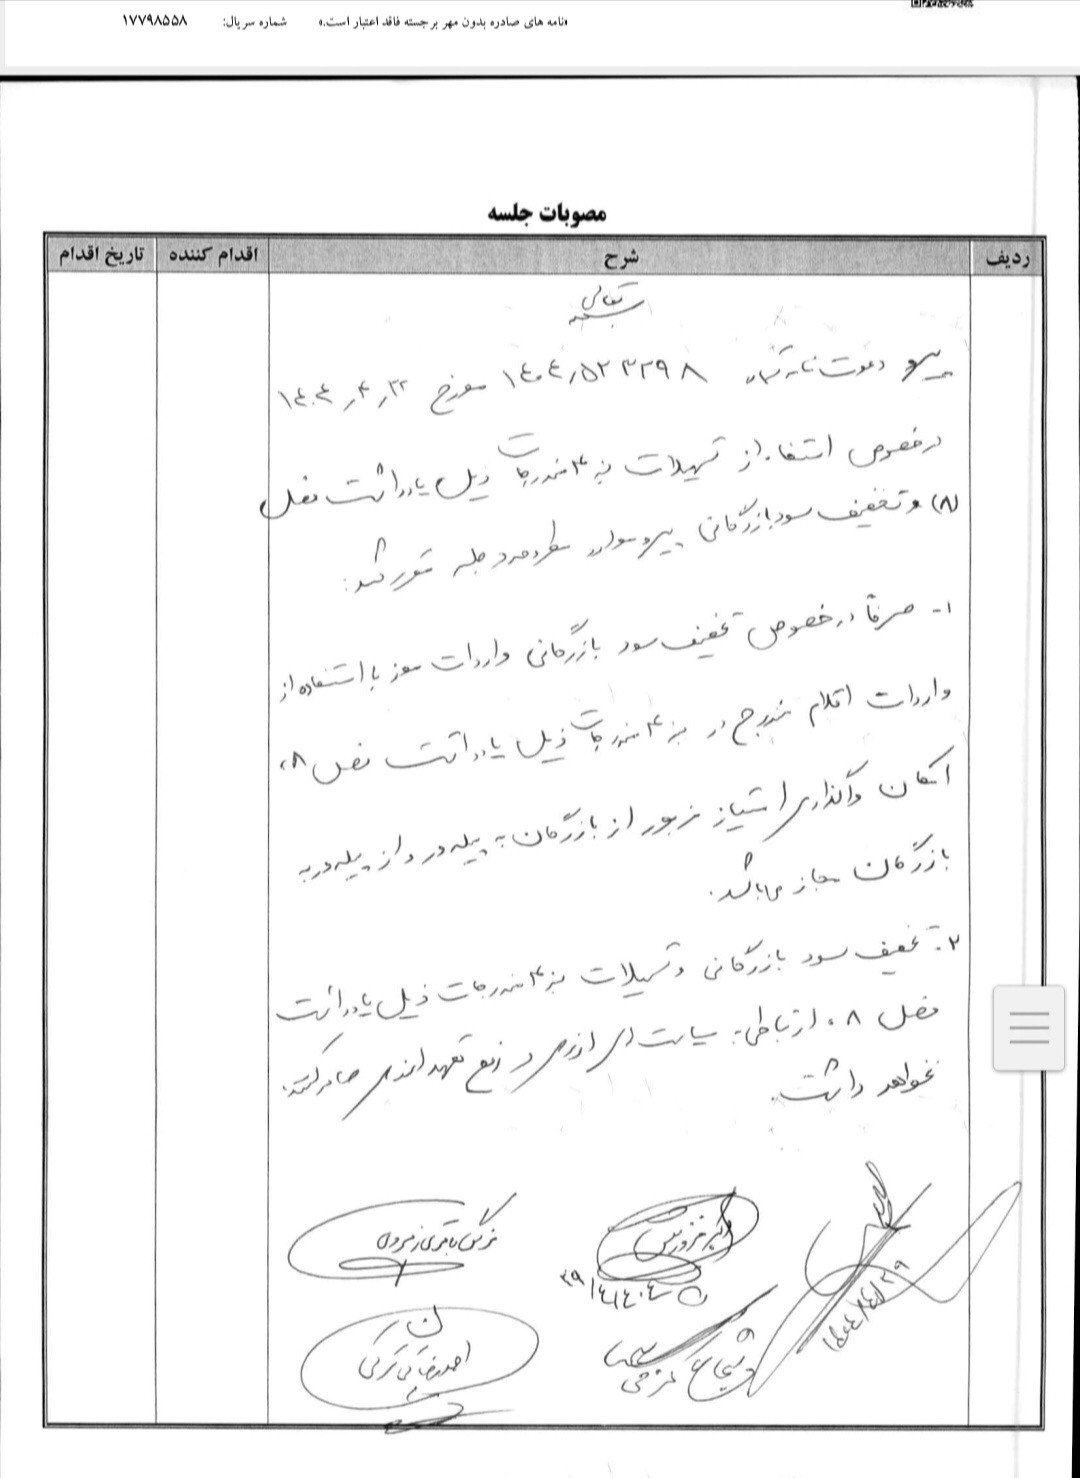 «نامه های صادره بدون مهر برجسته فاقد اعتبار است.» شماره سریال: ۱۷۷۹۸۵۵۸
مصوبات جلسه
ردیف شرح اقدام کننده تاریخ اقدام
بسمه تعالی
پیرو دعوت نامه شماره ۱۴۰۴٫۵۲۳۲۹۸ مورخ ۱۴۰۴٫۴٫۲۲
در خصوص استفاده از تسهیلات بند ۳ مندرجات ذیل یادداشت فصل
(۸) و تخفیف سود بازرگانی پیرو موارد مطروحه در جلسه مقرر شد:
۱- صرفاً در خصوص تخفیف سود بازرگانی واردات موز با استفاده از
واردات اقلام مندرج در بند ۳ مندرجات ذیل یادداشت فصل ۸،
امکان واگذاری امتیاز مزبور از بازرگان به پیله ور و از پیله ور به
بازرگان مجاز می باشد.
۲- تخفیف سود بازرگانی و تسهیلات بند ۳ مندرجات ذیل یادداشت
فصل ۸، ارتباطی به سیاست های ارزی و رفع تعهد ارزی صادرکننده
نخواهد داشت.
۱۴۰۴/۴/۲۹
۱۴۰۴/۴/۲۹